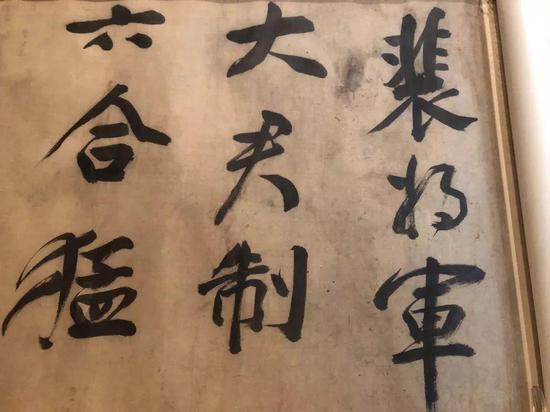 裴将軍
大君制
六合猛